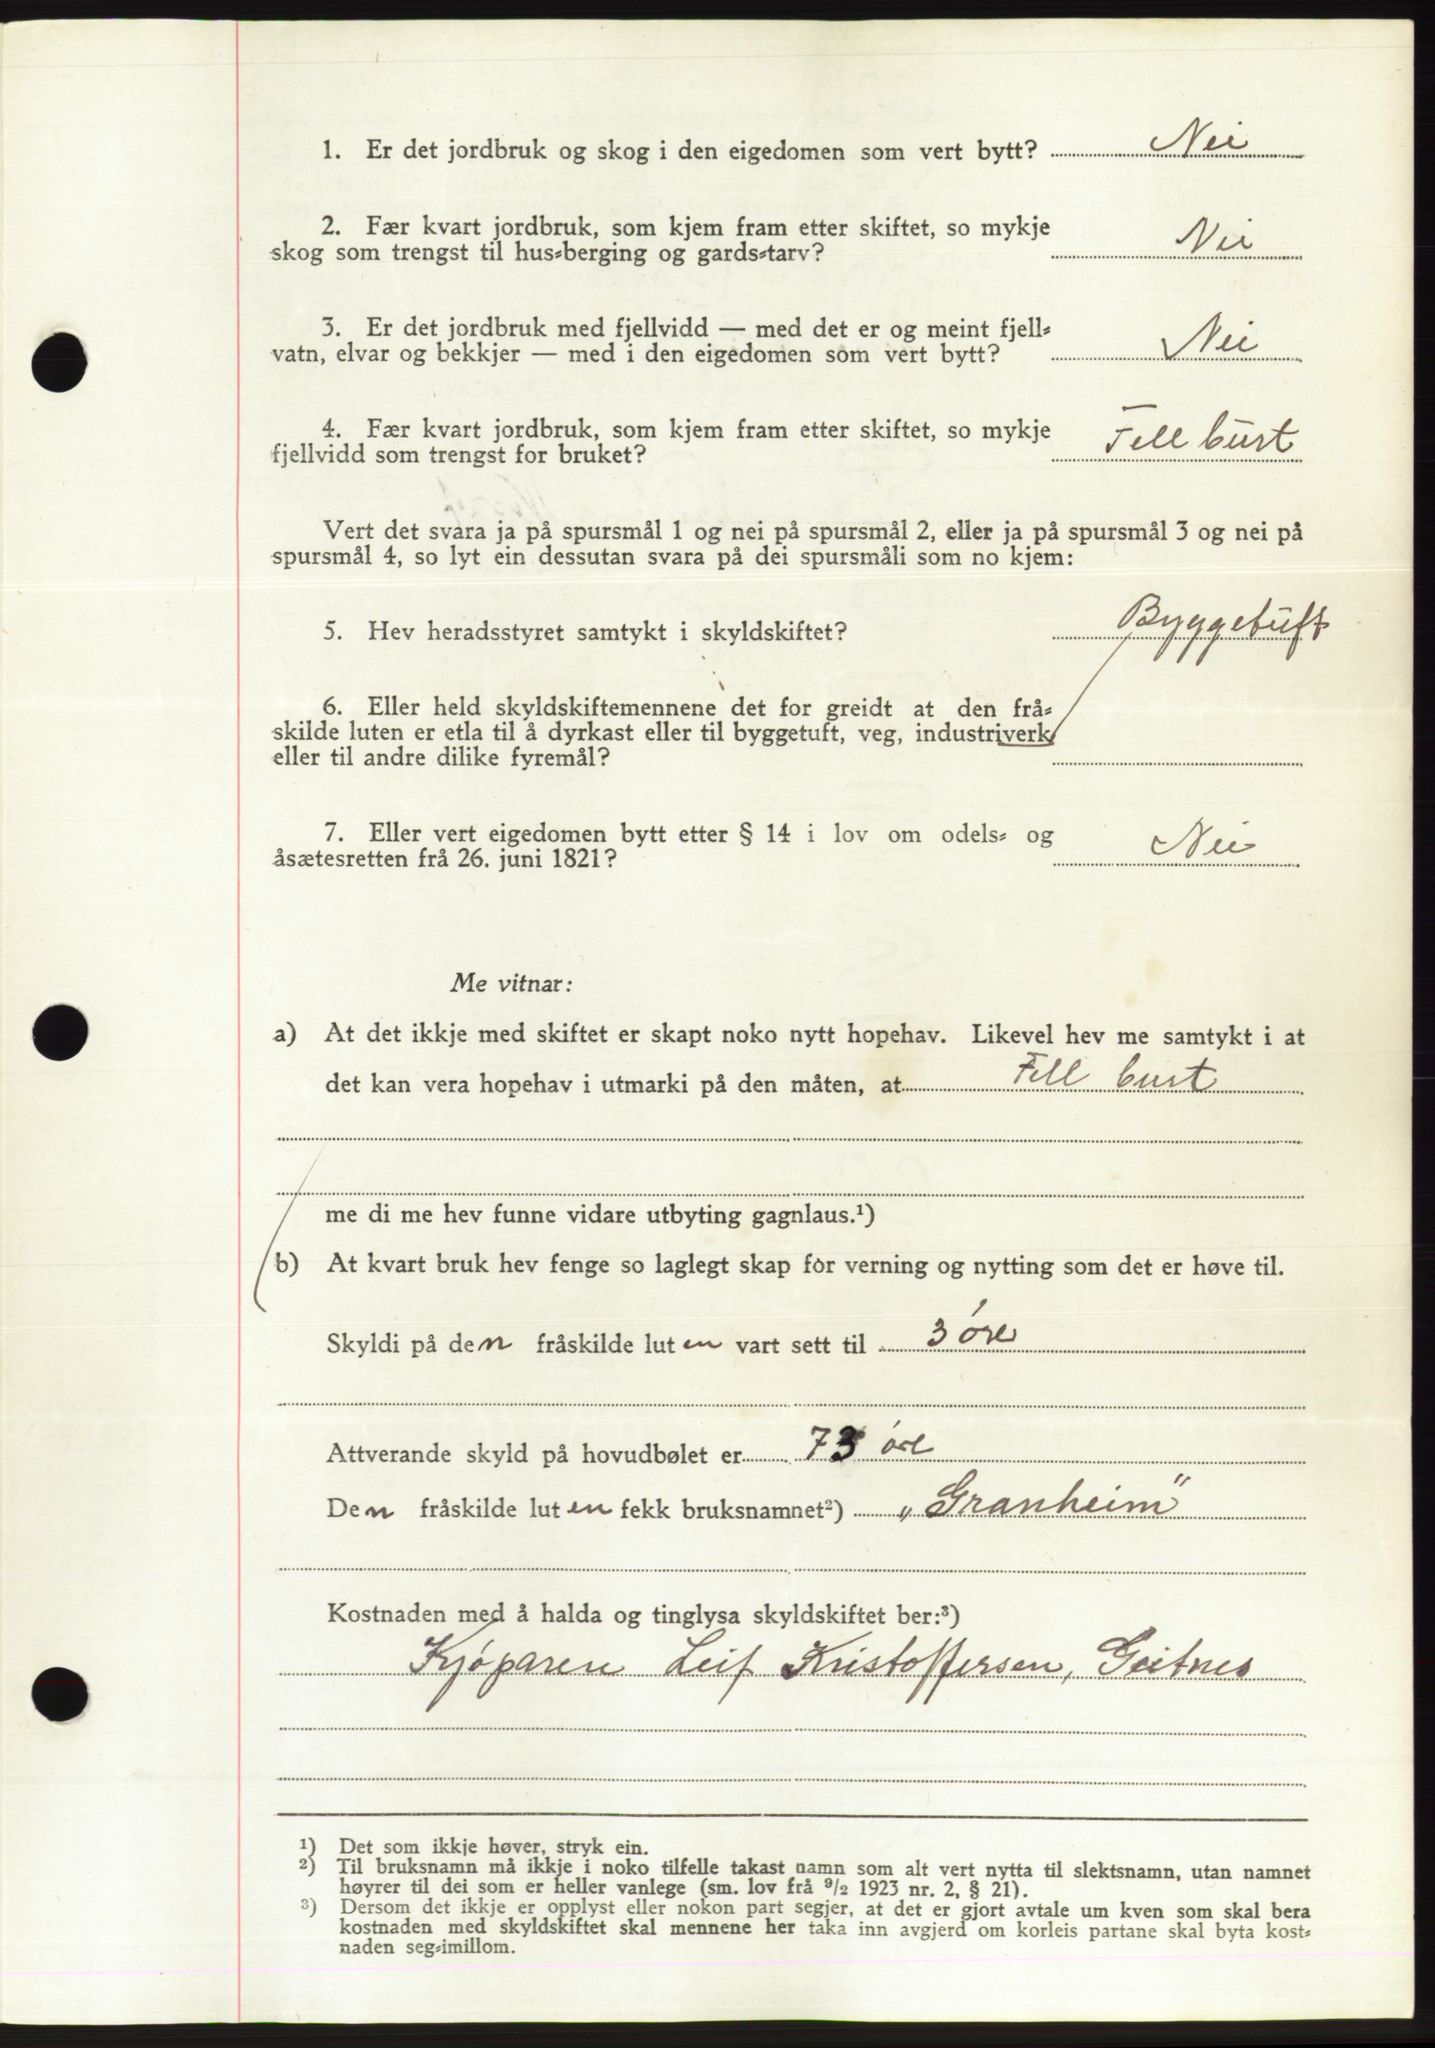 1. Er det jordbruk og skog i den eigedomen som vert bytt? Nei
2. Fær kvart jordbruk, som kjem fram etter skiftet, so mykje
skog som trengst til hus-berging og gards-tarv? Nei
3. Er det jordbruk med fjellvidd — med det er og meint fjell-
vatn, elvar og bekkjer — med i den eigedomen som vert bytt? Nei
4. Fær kvart jordbruk, som kjem fram etter skiftet, so mykje
fjellvidd som trengst for bruket? Fell burt
Vert det svara ja på spursmål 1 og nei på spursmål 2, eller ja på spursmål 3 og nei på
spursmål 4, so lyt ein dessutan svara på dei spursmåli som no kjem:
5. Hev heradsstyret samtykt i skyldskiftet? Byggetuft
6. Eller held skyldskiftemennene det for greidt at den frå-
skilde luten er etla til å dyrkast eller til byggetuft, veg, industriverk
eller til andre dilike fyremål?
7. Eller vert eigedomen bytt etter § 14 i lov om odels- og
åsætesretten frå 26. juni 1821? Nei
Me vitnar:
a) At det ikkje med skiftet er skapt noko nytt hopehav. Likevel hev me samtykt i at
det kan vera hopehav i utmarki på den måten, at Fell burt
me di me hev funne vidare utbyting gagnlaus.¹)
b) At kvart bruk hev fenge so laglegt skap for verning og nytting som det er høve til.
Skyldi på den fråskilde luten vart sett til 3 øre
Attverande skyld på hovudbølet er 73 øre
Den fråskilde luten fekk bruksnamnet²) „Granheim"
Kostnaden med å halda og tinglysa skyldskiftet ber:³)
Kjøparen Leif Kristoffersen, Geitnes
¹) Det som ikkje høver, stryk ein.
²) Til bruksnamn må ikkje i noko tilfelle takast namn som alt vert nytta til slektsnamn, utan namnet
høyrer til dei som er heller vanlege (sm. lov frå ⁹/₂ 1923 nr. 2, § 21).
³) Dersom det ikkje er opplyst eller nokon part segjer, at det er gjort avtale um kven som skal bera
kostnaden med skyldskiftet skal mennene her taka inn avgjerd om korleis partane skal byta kost-
naden seg-imillom.